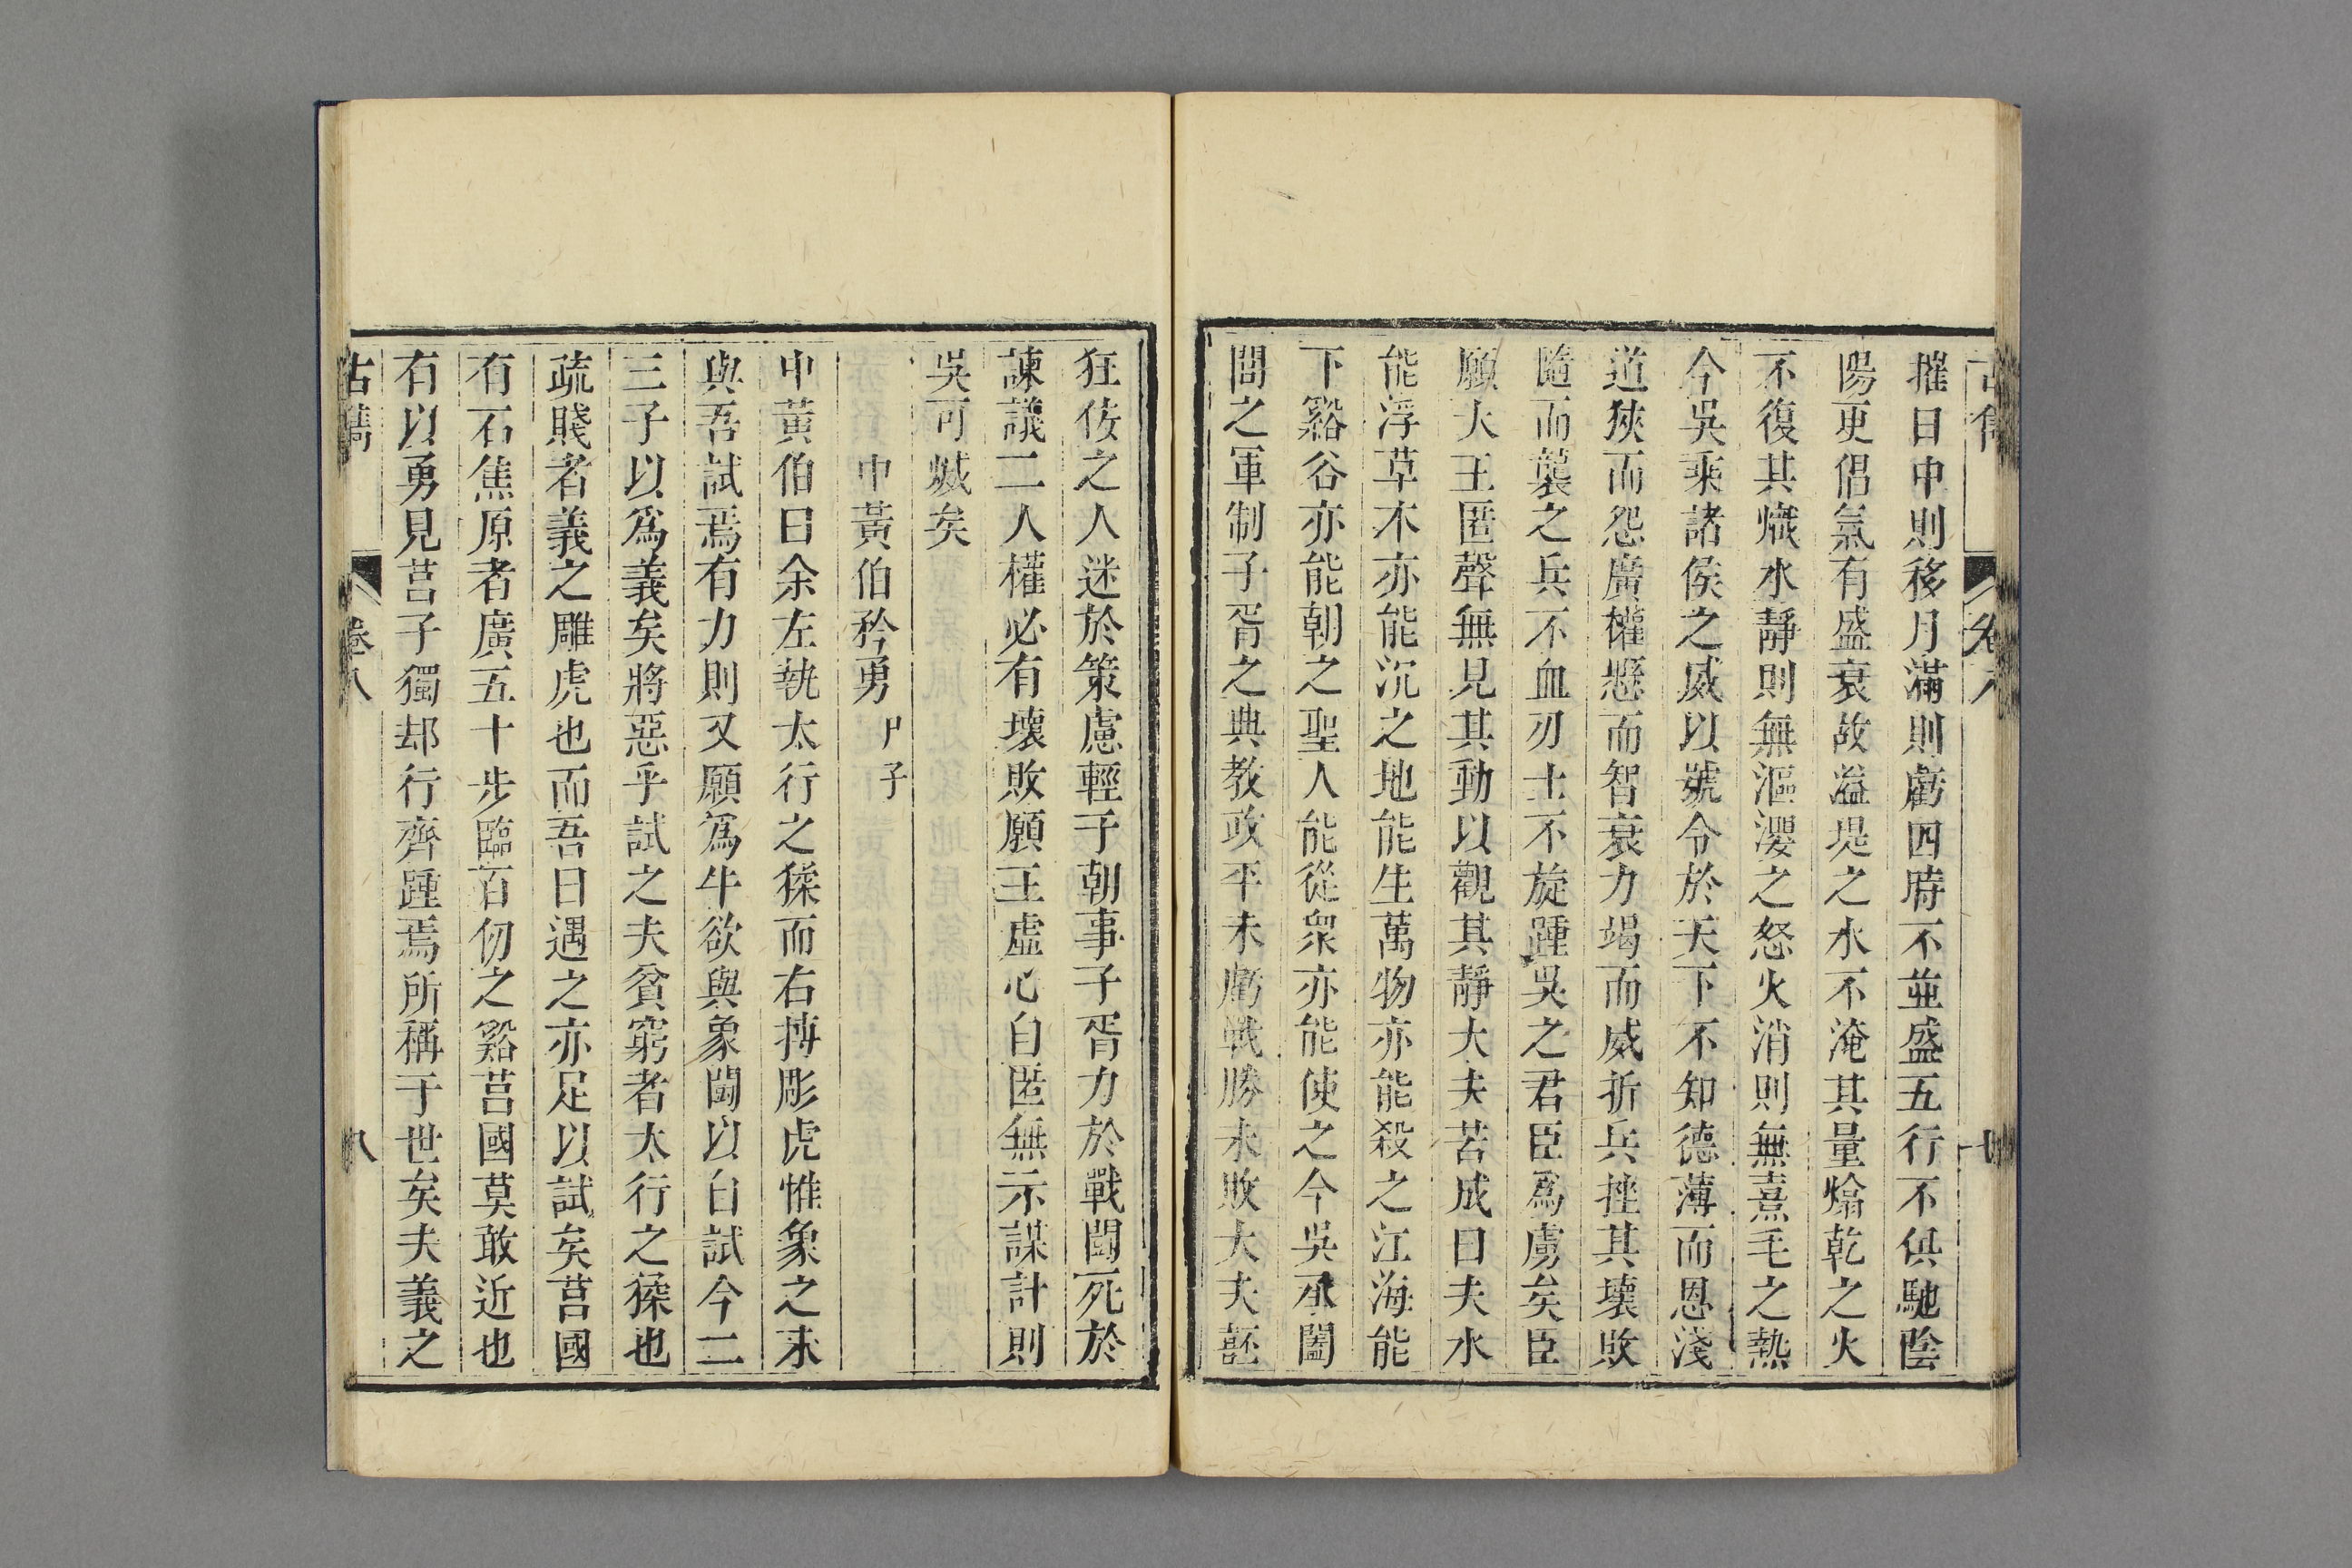 摧日中則移月滿則虧四時不並盛五行不俱馳陰
陽更倡氣有盛衰故溢堤之水不淹其量熻乾之火
不復其熾水靜則無漚瀴之怒火消則無熹毛之熱
今吳乘諸侯之威以號令於天下不知德薄而恩淺
道狹而怨廣權懸而智衰力竭而威折兵挫其壞敗
隨而襲之兵不血刃士不旋踵吳之君臣爲虜矣臣
願大王匿聲無見其動以觀其靜大夫苦成曰夫水
能浮草木亦能沉之地能生萬物亦能殺之江海能
下谿谷亦能朝之聖人能從衆亦能使之今吳承闔
閭之軍制子胥之典教政平未虧戰勝未敗大夫嚭
狂佞之人迷於策慮輕于朝事子胥力於戰鬪死於
諫議二人權必有壞敗願王虛心自匿無示謀計則
吳可滅矣
中黃伯矜勇 尸子
中黃伯曰余左執太行之猱而右搏彫虎惟象之未
與吾試焉有力則又願爲牛欲與象鬪以自試今二
三子以爲義矣將惡乎試之夫貧窮者太行之猱也
疏賤者義之雕虎也而吾日遇之亦足以試矣莒國
有石焦原者廣五十步臨百仞之谿莒國莫敢近也
有以勇見莒子獨却行齊踵焉所稱于世矣夫義之
卷八 八